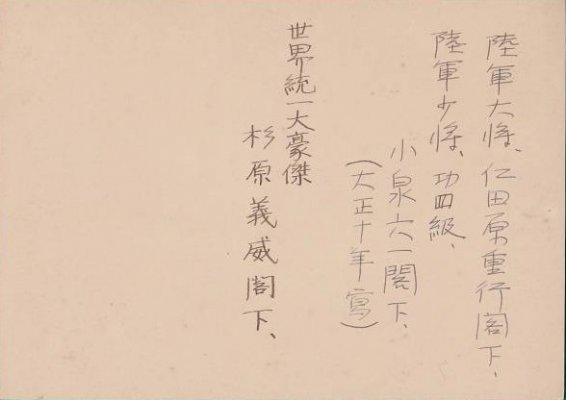 陸軍大将、仁田原重行閣下、
陸軍少将、功四級、
小泉六一閣下、
(大正十年寫)
世界統一大豪傑
杉原義威閣下、